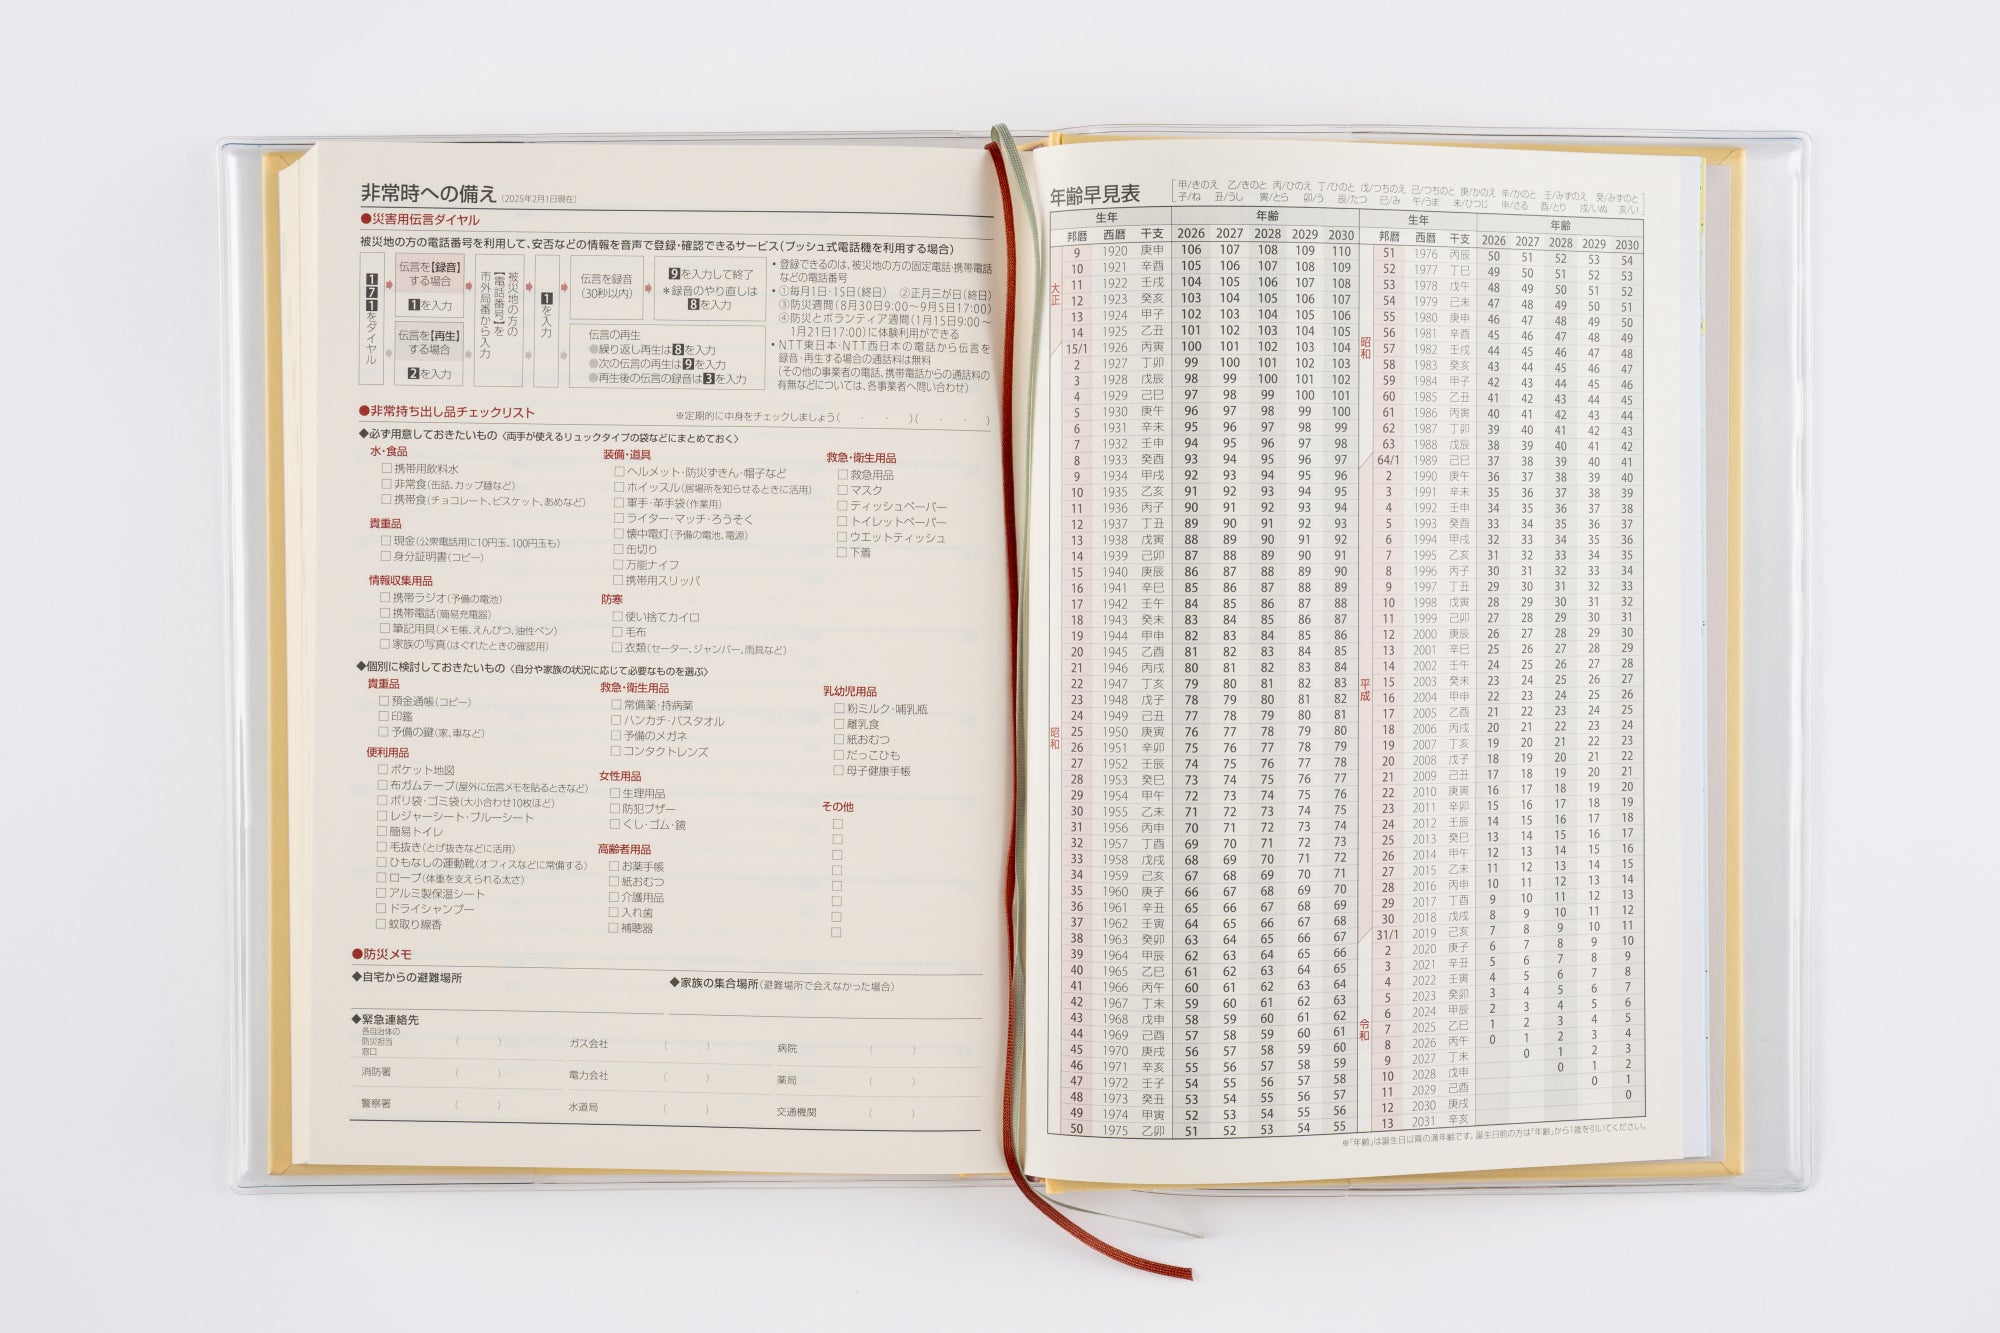 非常時への備え(2025年2月1日現在)
●災害用伝言ダイヤル
被災地の方の電話番号を利用して、安否などの情報を音声で登録・確認できるサービス(プッシュ式電話機を利用する場合)
171をダイヤル
伝言を【録音】
する場合
1を入力
伝言を【再生】
する場合
2を入力
被災地の方の
【電話番号】を
市外局番から入力
1を入力
伝言を録音
(30秒以内)
9を入力して終了
*録音のやり直しは
8を入力
伝言の再生
●繰り返し再生は8を入力
●次の伝言の再生は9を入力
●再生後の伝言の録音は3を入力
・登録できるのは、被災地の方の固定電話・携帯電話
などの電話番号
・①毎月1日・15日(終日) ②正月三が日(終日)
③防災週間(8月30日9:00〜9月5日17:00)
④防災とボランティア週間(1月15日9:00〜
1月21日17:00)に体験利用ができる
・NTT東日本・NTT西日本の電話から伝言を
録音・再生する場合の通話料は無料
(その他の事業者の電話、携帯電話からの通話料の
有無などについては、各事業者へ問い合わせ)
●非常持ち出し品チェックリスト
※定期的に中身をチェックしましょう( ・ ・ )( ・ ・ )
◆必ず用意しておきたいもの〈両手が使えるリュックタイプの袋などにまとめておく〉
水・食品
□携帯用飲料水
□非常食(缶詰、カップ麺など)
□携帯食(チョコレート、ビスケット、あめなど)
貴重品
□現金(公衆電話用に10円玉、100円玉も)
□身分証明書(コピー)
情報収集用品
□携帯ラジオ(予備の電池)
□携帯電話(簡易充電器)
□筆記用具(メモ帳、えんぴつ、油性ペン)
□家族の写真(はぐれたときの確認用)
装備・道具
□ヘルメット・防災ずきん・帽子など
□ホイッスル(居場所を知らせるときに活用)
□軍手・革手袋(作業用)
□ライター・マッチ・ろうそく
□懐中電灯(予備の電池、電源)
□缶切り
□万能ナイフ
□携帯用スリッパ
防寒
□使い捨てカイロ
□毛布
□衣類(セーター、ジャンパー、雨具など)
救急・衛生用品
□救急用品
□マスク
□ティッシュペーパー
□トイレットペーパー
□ウエットティッシュ
□下着
◆個別に検討しておきたいもの〈自分や家族の状況に応じて必要なものを選ぶ〉
貴重品
□預金通帳(コピー)
□印鑑
□予備の鍵(家、車など)
便利用品
□ポケット地図
□布ガムテープ(屋外に伝言メモを貼るときなど)
□ポリ袋・ゴミ袋(大小合わせ10枚ほど)
□レジャーシート・ブルーシート
□簡易トイレ
□毛抜き(とげ抜きなどに活用)
□ひもなしの運動靴(オフィスなどに常備する)
□ロープ(体重を支えられる太さ)
□アルミ製保温シート
□ドライシャンプー
□蚊取り線香
救急・衛生用品
□常備薬・持病薬
□ハンカチ・バスタオル
□予備のメガネ
□コンタクトレンズ
女性用品
□生理用品
□防犯ブザー
□くし・ゴム・鏡
高齢者用品
□お薬手帳
□紙おむつ
□介護用品
□入れ歯
□補聴器
乳幼児用品
□粉ミルク・哺乳瓶
□離乳食
□紙おむつ
□だっこひも
□母子健康手帳
その他
□
□
□
□
□
□
□
□
●防災メモ
◆自宅からの避難場所
◆家族の集合場所(避難場所で会えなかった場合)
◆緊急連絡先
各自治体の
防災担当
窓口 ( ) ガス会社 ( ) 病院 ( )
消防署 ( ) 電力会社 ( ) 薬局 ( )
警察署 ( ) 水道局 ( ) 交通機関 ( )
年齢早見表
甲/きのえ 乙/きのと 丙/ひのえ 丁/ひのと 戊/つちのえ 己/つちのと 庚/かのえ 辛/かのと 壬/みずのえ 癸/みずのと
子/ね 丑/うし 寅/とら 卯/う 辰/たつ 巳/み 午/うま 未/ひつじ 申/さる 酉/とり 戌/いぬ 亥/い
生年 年齢
邦暦 西暦 干支 2026 2027 2028 2029 2030
大正
9 1920 庚申 106 107 108 109 110
10 1921 辛酉 105 106 107 108 109
11 1922 壬戌 104 105 106 107 108
12 1923 癸亥 103 104 105 106 107
13 1924 甲子 102 103 104 105 106
14 1925 乙丑 101 102 103 104 105
15/1 1926 丙寅 100 101 102 103 104
昭和
2 1927 丁卯 99 100 101 102 103
3 1928 戊辰 98 99 100 101 102
4 1929 己巳 97 98 99 100 101
5 1930 庚午 96 97 98 99 100
6 1931 辛未 95 96 97 98 99
7 1932 壬申 94 95 96 97 98
8 1933 癸酉 93 94 95 96 97
9 1934 甲戌 92 93 94 95 96
10 1935 乙亥 91 92 93 94 95
11 1936 丙子 90 91 92 93 94
12 1937 丁丑 89 90 91 92 93
13 1938 戊寅 88 89 90 91 92
14 1939 己卯 87 88 89 90 91
15 1940 庚辰 86 87 88 89 90
16 1941 辛巳 85 86 87 88 89
17 1942 壬午 84 85 86 87 88
18 1943 癸未 83 84 85 86 87
19 1944 甲申 82 83 84 85 86
20 1945 乙酉 81 82 83 84 85
21 1946 丙戌 80 81 82 83 84
22 1947 丁亥 79 80 81 82 83
23 1948 戊子 78 79 80 81 82
24 1949 己丑 77 78 79 80 81
25 1950 庚寅 76 77 78 79 80
26 1951 辛卯 75 76 77 78 79
27 1952 壬辰 74 75 76 77 78
28 1953 癸巳 73 74 75 76 77
29 1954 甲午 72 73 74 75 76
30 1955 乙未 71 72 73 74 75
31 1956 丙申 70 71 72 73 74
32 1957 丁酉 69 70 71 72 73
33 1958 戊戌 68 69 70 71 72
34 1959 己亥 67 68 69 70 71
35 1960 庚子 66 67 68 69 70
36 1961 辛丑 65 66 67 68 69
37 1962 壬寅 64 65 66 67 68
38 1963 癸卯 63 64 65 66 67
39 1964 甲辰 62 63 64 65 66
40 1965 乙巳 61 62 63 64 65
41 1966 丙午 60 61 62 63 64
42 1967 丁未 59 60 61 62 63
43 1968 戊申 58 59 60 61 62
44 1969 己酉 57 58 59 60 61
45 1970 庚戌 56 57 58 59 60
46 1971 辛亥 55 56 57 58 59
47 1972 壬子 54 55 56 57 58
48 1973 癸丑 53 54 55 56 57
49 1974 甲寅 52 53 54 55 56
50 1975 乙卯 51 52 53 54 55
生年 年齢
邦暦 西暦 干支 2026 2027 2028 2029 2030
昭和
51 1976 丙辰 50 51 52 53 54
52 1977 丁巳 49 50 51 52 53
53 1978 戊午 48 49 50 51 52
54 1979 己未 47 48 49 50 51
55 1980 庚申 46 47 48 49 50
56 1981 辛酉 45 46 47 48 49
57 1982 壬戌 44 45 46 47 48
58 1983 癸亥 43 44 45 46 47
59 1984 甲子 42 43 44 45 46
60 1985 乙丑 41 42 43 44 45
61 1986 丙寅 40 41 42 43 44
62 1987 丁卯 39 40 41 42 43
63 1988 戊辰 38 39 40 41 42
64/1 1989 己巳 37 38 39 40 41
平成
2 1990 庚午 36 37 38 39 40
3 1991 辛未 35 36 37 38 39
4 1992 壬申 34 35 36 37 38
5 1993 癸酉 33 34 35 36 37
6 1994 甲戌 32 33 34 35 36
7 1995 乙亥 31 32 33 34 35
8 1996 丙子 30 31 32 33 34
9 1997 丁丑 29 30 31 32 33
10 1998 戊寅 28 29 30 31 32
11 1999 己卯 27 28 29 30 31
12 2000 庚辰 26 27 28 29 30
13 2001 辛巳 25 26 27 28 29
14 2002 壬午 24 25 26 27 28
15 2003 癸未 23 24 25 26 27
16 2004 甲申 22 23 24 25 26
17 2005 乙酉 21 22 23 24 25
18 2006 丙戌 20 21 22 23 24
19 2007 丁亥 19 20 21 22 23
20 2008 戊子 18 19 20 21 22
21 2009 己丑 17 18 19 20 21
22 2010 庚寅 16 17 18 19 20
23 2011 辛卯 15 16 17 18 19
24 2012 壬辰 14 15 16 17 18
25 2013 癸巳 13 14 15 16 17
26 2014 甲午 12 13 14 15 16
27 2015 乙未 11 12 13 14 15
28 2016 丙申 10 11 12 13 14
29 2017 丁酉 9 10 11 12 13
30 2018 戊戌 8 9 10 11 12
31/1 2019 己亥 7 8 9 10 11
令和
2 2020 庚子 6 7 8 9 10
3 2021 辛丑 5 6 7 8 9
4 2022 壬寅 4 5 6 7 8
5 2023 癸卯 3 4 5 6 7
6 2024 甲辰 2 3 4 5 6
7 2025 乙巳 1 2 3 4 5
8 2026 丙午 0 1 2 3 4
9 2027 丁未 0 1 2 3
10 2028 戊申 0 1 2
11 2029 己酉 0 1
12 2030 庚戌 0
13 2031 辛亥
※「年齢」は誕生日以降の満年齢です。誕生日前の方は「年齢」から1歳を引いてください。